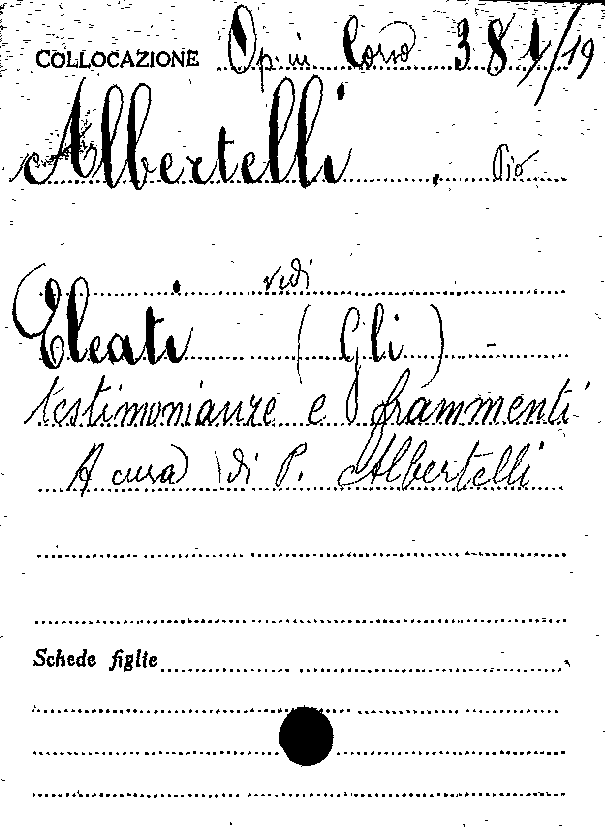 COLLOCAZIONE Op. in Corso 381/19
Albertelli, Pio
vedi
Eleati (Gli) -
testimonianze e frammenti
A cura di P. Albertelli
Schede figlie